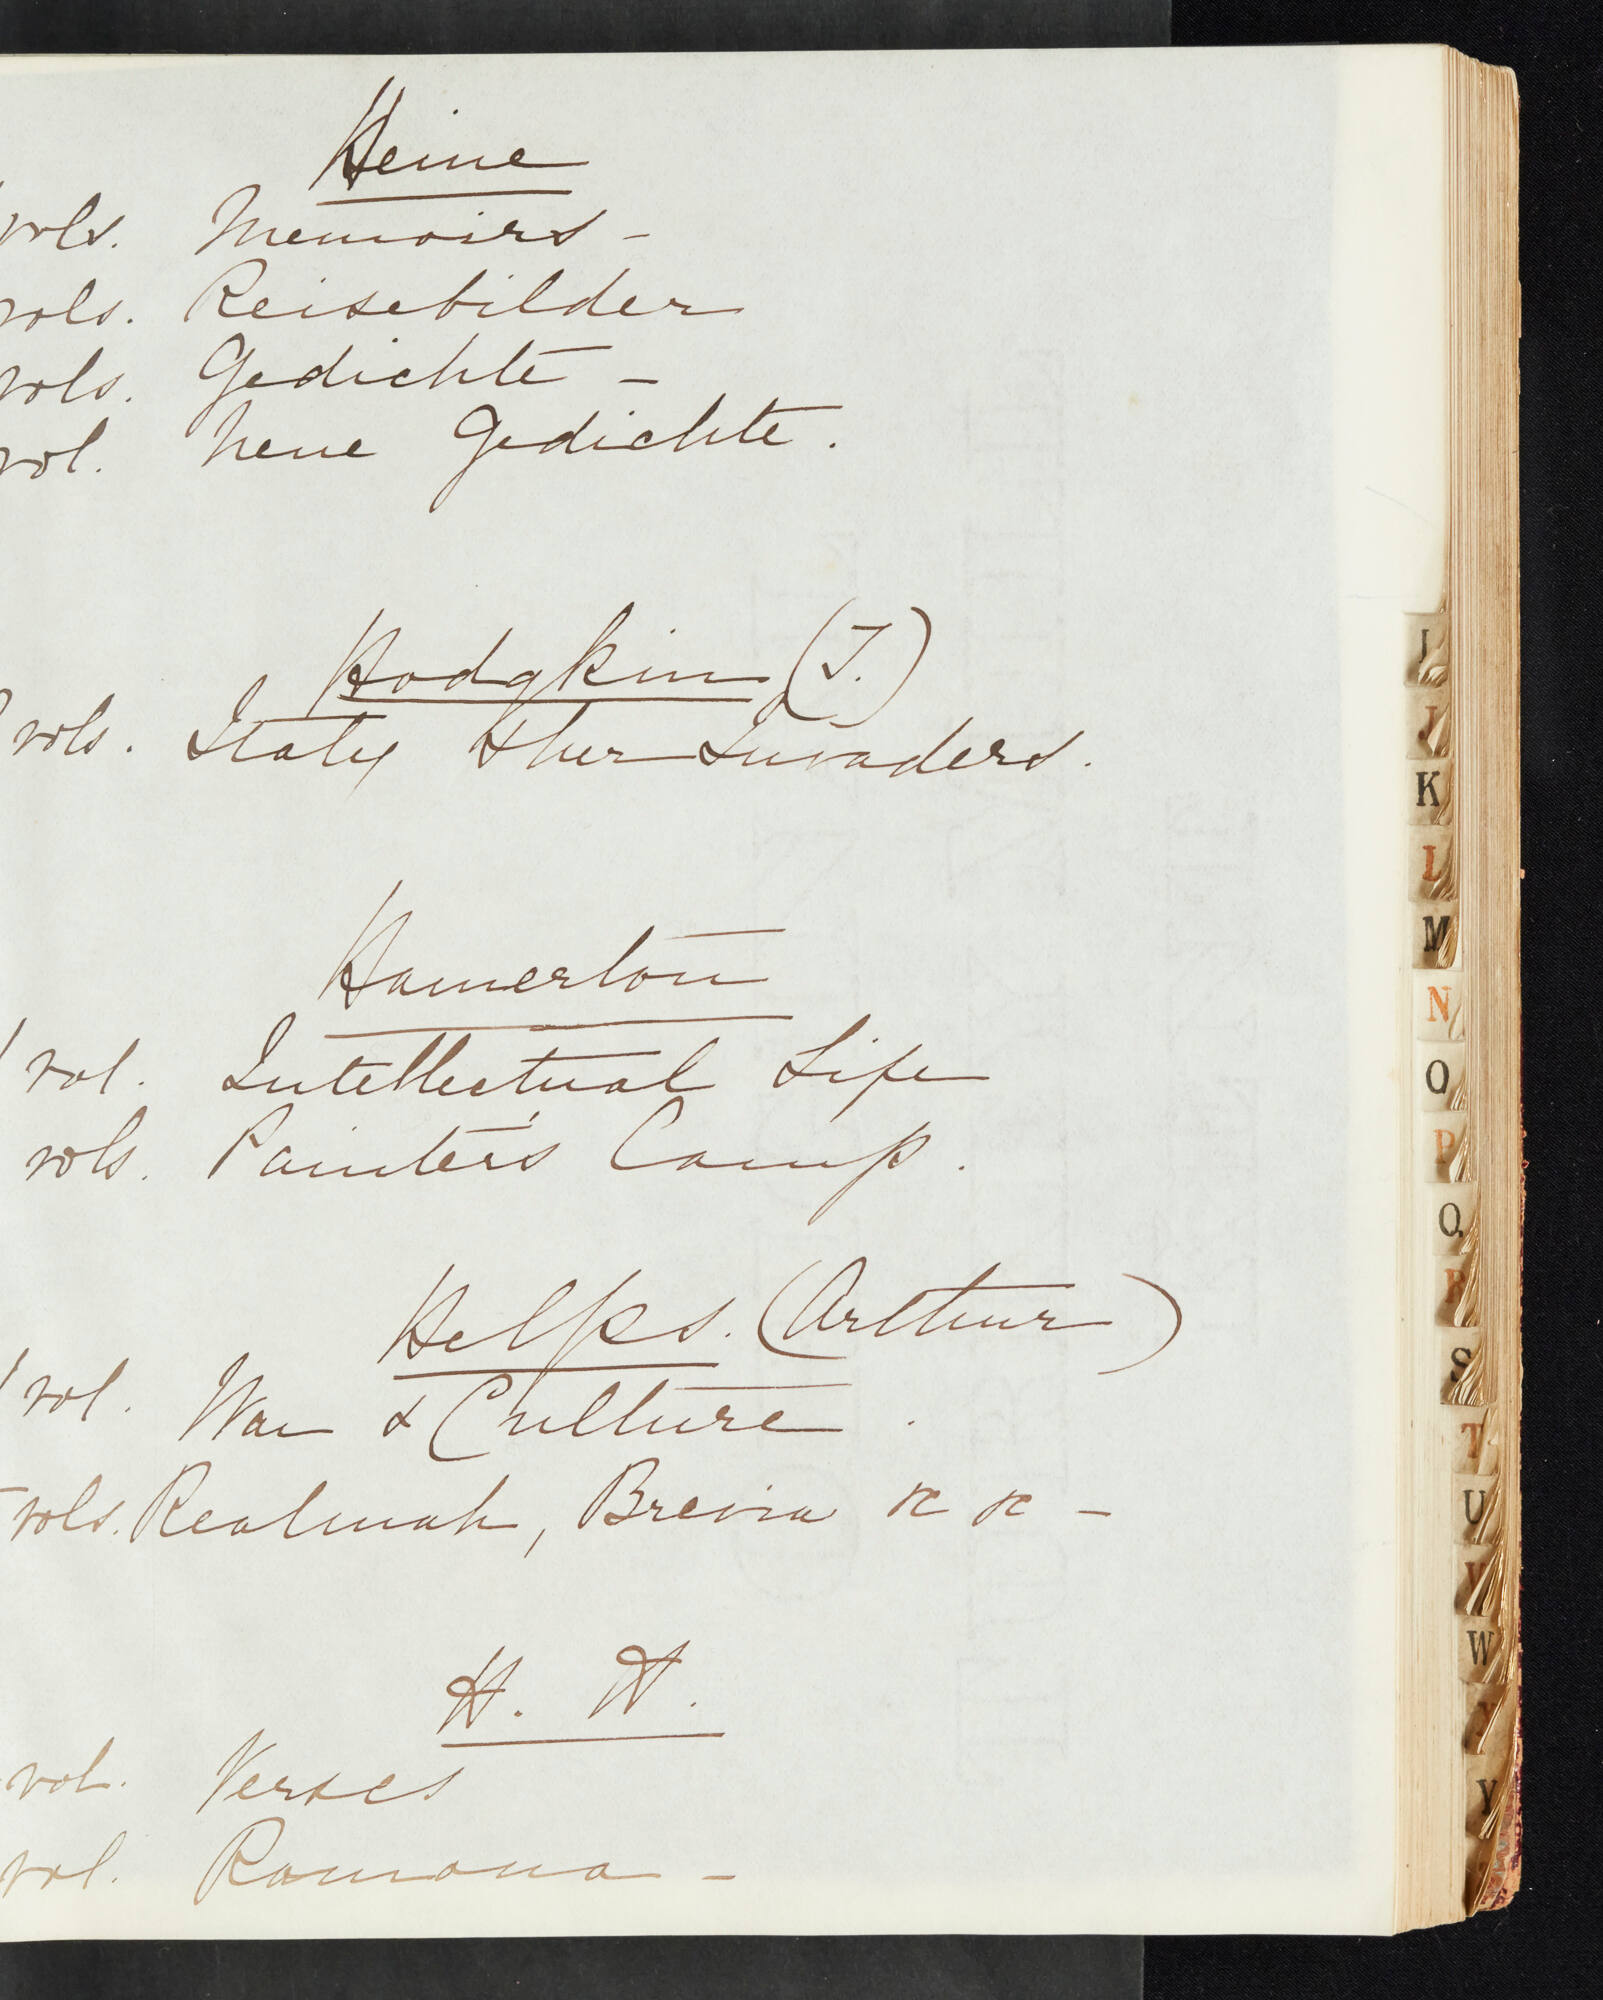 Heine
vols. Memoirs -
vols. Reisebilder
vols. Gedichte -
vol. Neue Gedichte.
Hodgkin (T.)
vols. Italy & her Invaders.
Hamerton
1 vol. Intellectual Life
vols. Painter's Camp.
Helps. (Arthur)
1 vol. War & Culture.
vols. Realmah, Brevia &c &c -
H. H.
vol. Verses
vol. Ramona -
I
J
K
L
M
N
O
P
Q
R
S
T
U
V
W
Y